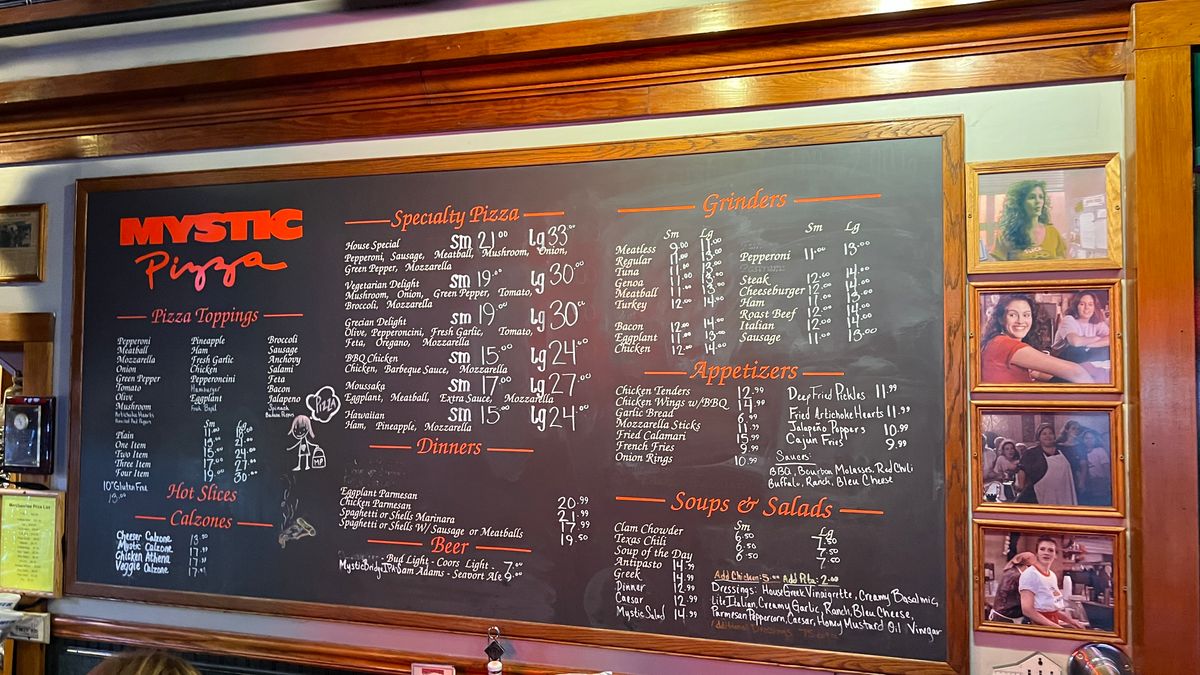 MYSTIC
Pizza
Pizza Toppings
Pepperoni
Meatball
Mozzarella
Onion
Green Pepper
Tomato
Olive
Mushroom
Artichoke Hearts
Roasted Red Peppers
Pineapple
Ham
Fresh Garlic
Chicken
Pepperoncini
Hamburger
Eggplant
Fresh Basil
Broccoli
Sausage
Anchovy
Salami
Feta
Bacon
Jalapeno
Spinach
Banana Peppers
Sm Lg
Plain
One Item
Two Item 24.00
Three Item 27.00
Four Item 30.00
10" Gluten Free
PIZZA
MP
Hot Slices
Calzones
Cheese Calzone
Mystic Calzone
Chicken Athena
Veggie Calzone
Specialty Pizza
House Special sm 21.00 lg 33.00
Pepperoni, Sausage, Meatball, Mushroom, Onion,
Green Pepper, Mozzarella
Vegetarian Delight sm 19.00 lg 30.00
Mushroom, Onion, Green Pepper, Tomato,
Broccoli, Mozzarella
Grecian Delight sm 19.00 lg 30.00
Olive, Pepperoncini, Fresh Garlic, Tomato,
Feta, Oregano, Mozzarella
BBQ Chicken sm 15.00 lg 24.00
Chicken, Barbeque Sauce, Mozzarella
Moussaka sm 17.00 lg 27.00
Eggplant, Meatball, Extra Sauce, Mozzarella
Hawaiian sm 15.00 lg 24.00
Ham, Pineapple, Mozzarella
Dinners
Eggplant Parmesan 20.99
Chicken Parmesan 21.99
Spaghetti or Shells Marinara 17.99
Spaghetti or Shells W/Sausage or Meatballs 19.50
Beer
Bud Light - Coors Light - 7.00
Mystic Bridge IPA Sam Adams - Seaport Ale 9.00
Grinders
Sm Lg
Meatless 9.00 11.00
Regular 11.00 13.00
Tuna 11.00 13.00
Genoa 11.00 13.00
Meatball 11.00 13.00
Turkey 12.00 14.00
Bacon 12.00 14.00
Eggplant 11.00 13.00
Chicken 12.00 14.00
Sm Lg
Pepperoni 11.00 13.00
Steak 12.00 14.00
Cheeseburger 12.00 14.00
Ham 11.00 13.00
Roast Beef 12.00 14.00
Italian 12.00 14.00
Sausage 11.00 13.00
Appetizers
Chicken Tenders 12.99
Chicken Wings w/BBQ 14.99
Garlic Bread 6.99
Mozzarella Sticks 11.99
Fried Calamari 15.99
French Fries 9.99
Onion Rings 10.99
Deep Fried Pickles 11.99
Fried Artichoke Hearts 11.99
Jalapeño Poppers 10.99
Cajun Fries 9.99
Sauces:
BBQ, Bourbon Molasses, Red Chili
Buffalo, Ranch, Bleu Cheese
Soups & Salads
Sm Lg
Clam Chowder 6.50 7.50
Texas Chili 6.50 7.50
Soup of the Day 6.50 7.50
Antipasto 14.99
Greek 14.99
Dinner 12.99
Caesar 12.99
Mystic Salad 14.99
Add Chicken: 5.00 Add Pita: 2.00
Dressings: House Greek Vinaigrette, Creamy Balsamic,
Lite Italian, Creamy Garlic, Ranch, Bleu Cheese,
Parmesan Peppercorn, Caesar, Honey Mustard Oil Vinegar
Additional Dressings
Merchandise Price List